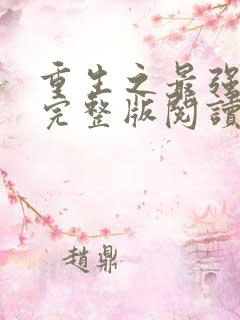 重生之最强
完整版閱讀
趙鼎